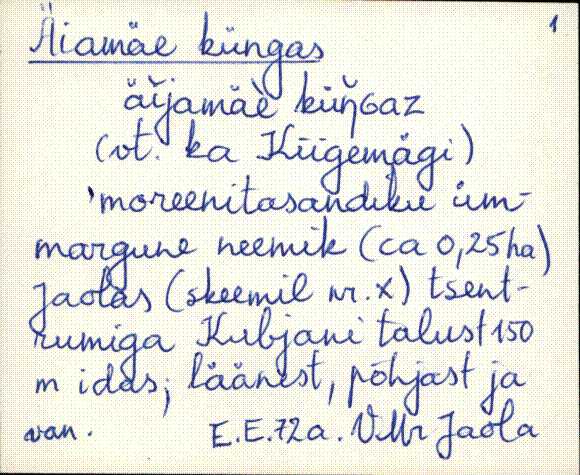 1
Äiamäe küngas
äĭjamäè küŋ̆ɢaz
(vt. ka Kiigemägi)
'moreenitasandiku üm-
margune neemik (ca 0,25 ha)
Jaolas (skeemil nr. X) tsent-
rumiga Kubjani talust 150
m idas; läänest, põhjast ja
van. E.E. 72 a. VMr Jaola